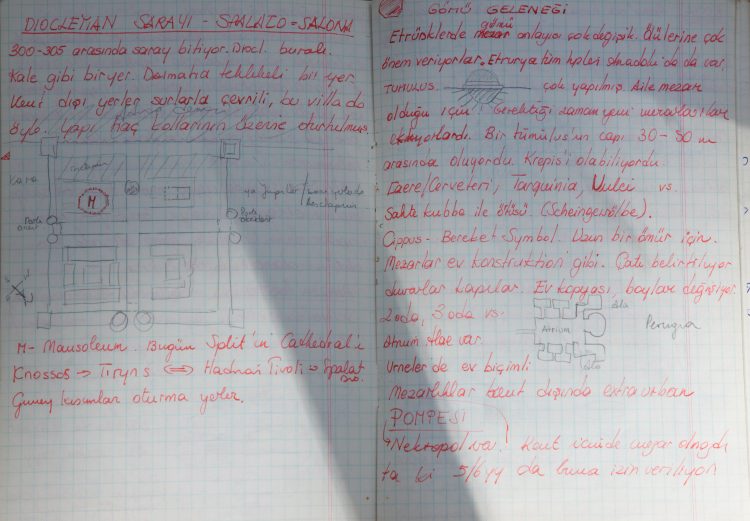 DIOCLETIAN SARAYI - SPALATO = SALONA
300-305 arasında saray bitiyor. Diocl. buralı.
Kale gibi bir yer. Dalmatia tehlikeli bir yer.
Kent dışı yerler surlarla çevrili, bu villa da
öyle. Yapı Haç kollarının üzerine oturtulmuş.
Kara
M
Porta
ya yapılar
M- Mausoleum. Bugün Split'in Cathedral'i
Knossos → Tiryns ⟺ Hadrian Tivoli → Spalat
Güney kısımlar oturma yerler.
GÖMÜ GELENEĞİ
Etrüsklerde gömü anlayışı çok değişik. Ölülerine çok
önem veriyorlar. Etrurya tüm Ispanada da var.
TUMULUS. çok yapılmış. Aile mezar
olduğu için. Gerektiği zaman yeni
Bir tümülüs'ün çapı 30-50 m
arasında oluyordu. Krepis'i olabiliyordu.
Caere/Cerveteri, Tarquinia, Vulci vs.
Sahte kubbe ile örtüsü. (Scheingewölbe).
Cippus- Bereket Symbol. Uzun bir ömür için.
Mezarlar ev konstruktion'i gibi. Çatı belirtiliyor
duvarlar kapılar. Ev kopyası, boylar değişiyor.
2 oda, 3 oda vs.
Atrium Alae var.
Ala
Atrium
Perugia
Ala
Urneler de ev biçimli
Mezarlıklar kent dışında extraurban
POMPEJİ
Nekropol var. Kent içinde mezar olmazdı
ta ki 5/6 yy da buna izin veriliyor